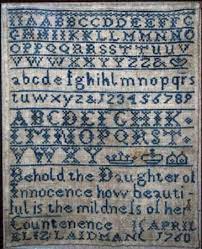 AABBCCDDEEFFG
GHHIIKKLLMMNNO
OPPQQRRSSTTUUV
VWWXXYYZZ&
abcdefghiklmnopqrs
tuwxyz&123456789
ABCDEFGHIK
LMNOPQRST
VWXY
Behold the Daughter of
Innocence how beauti-
ful is the mildness of her
Countenence 15 APRIL
ELIZ LAIDMAN 1760